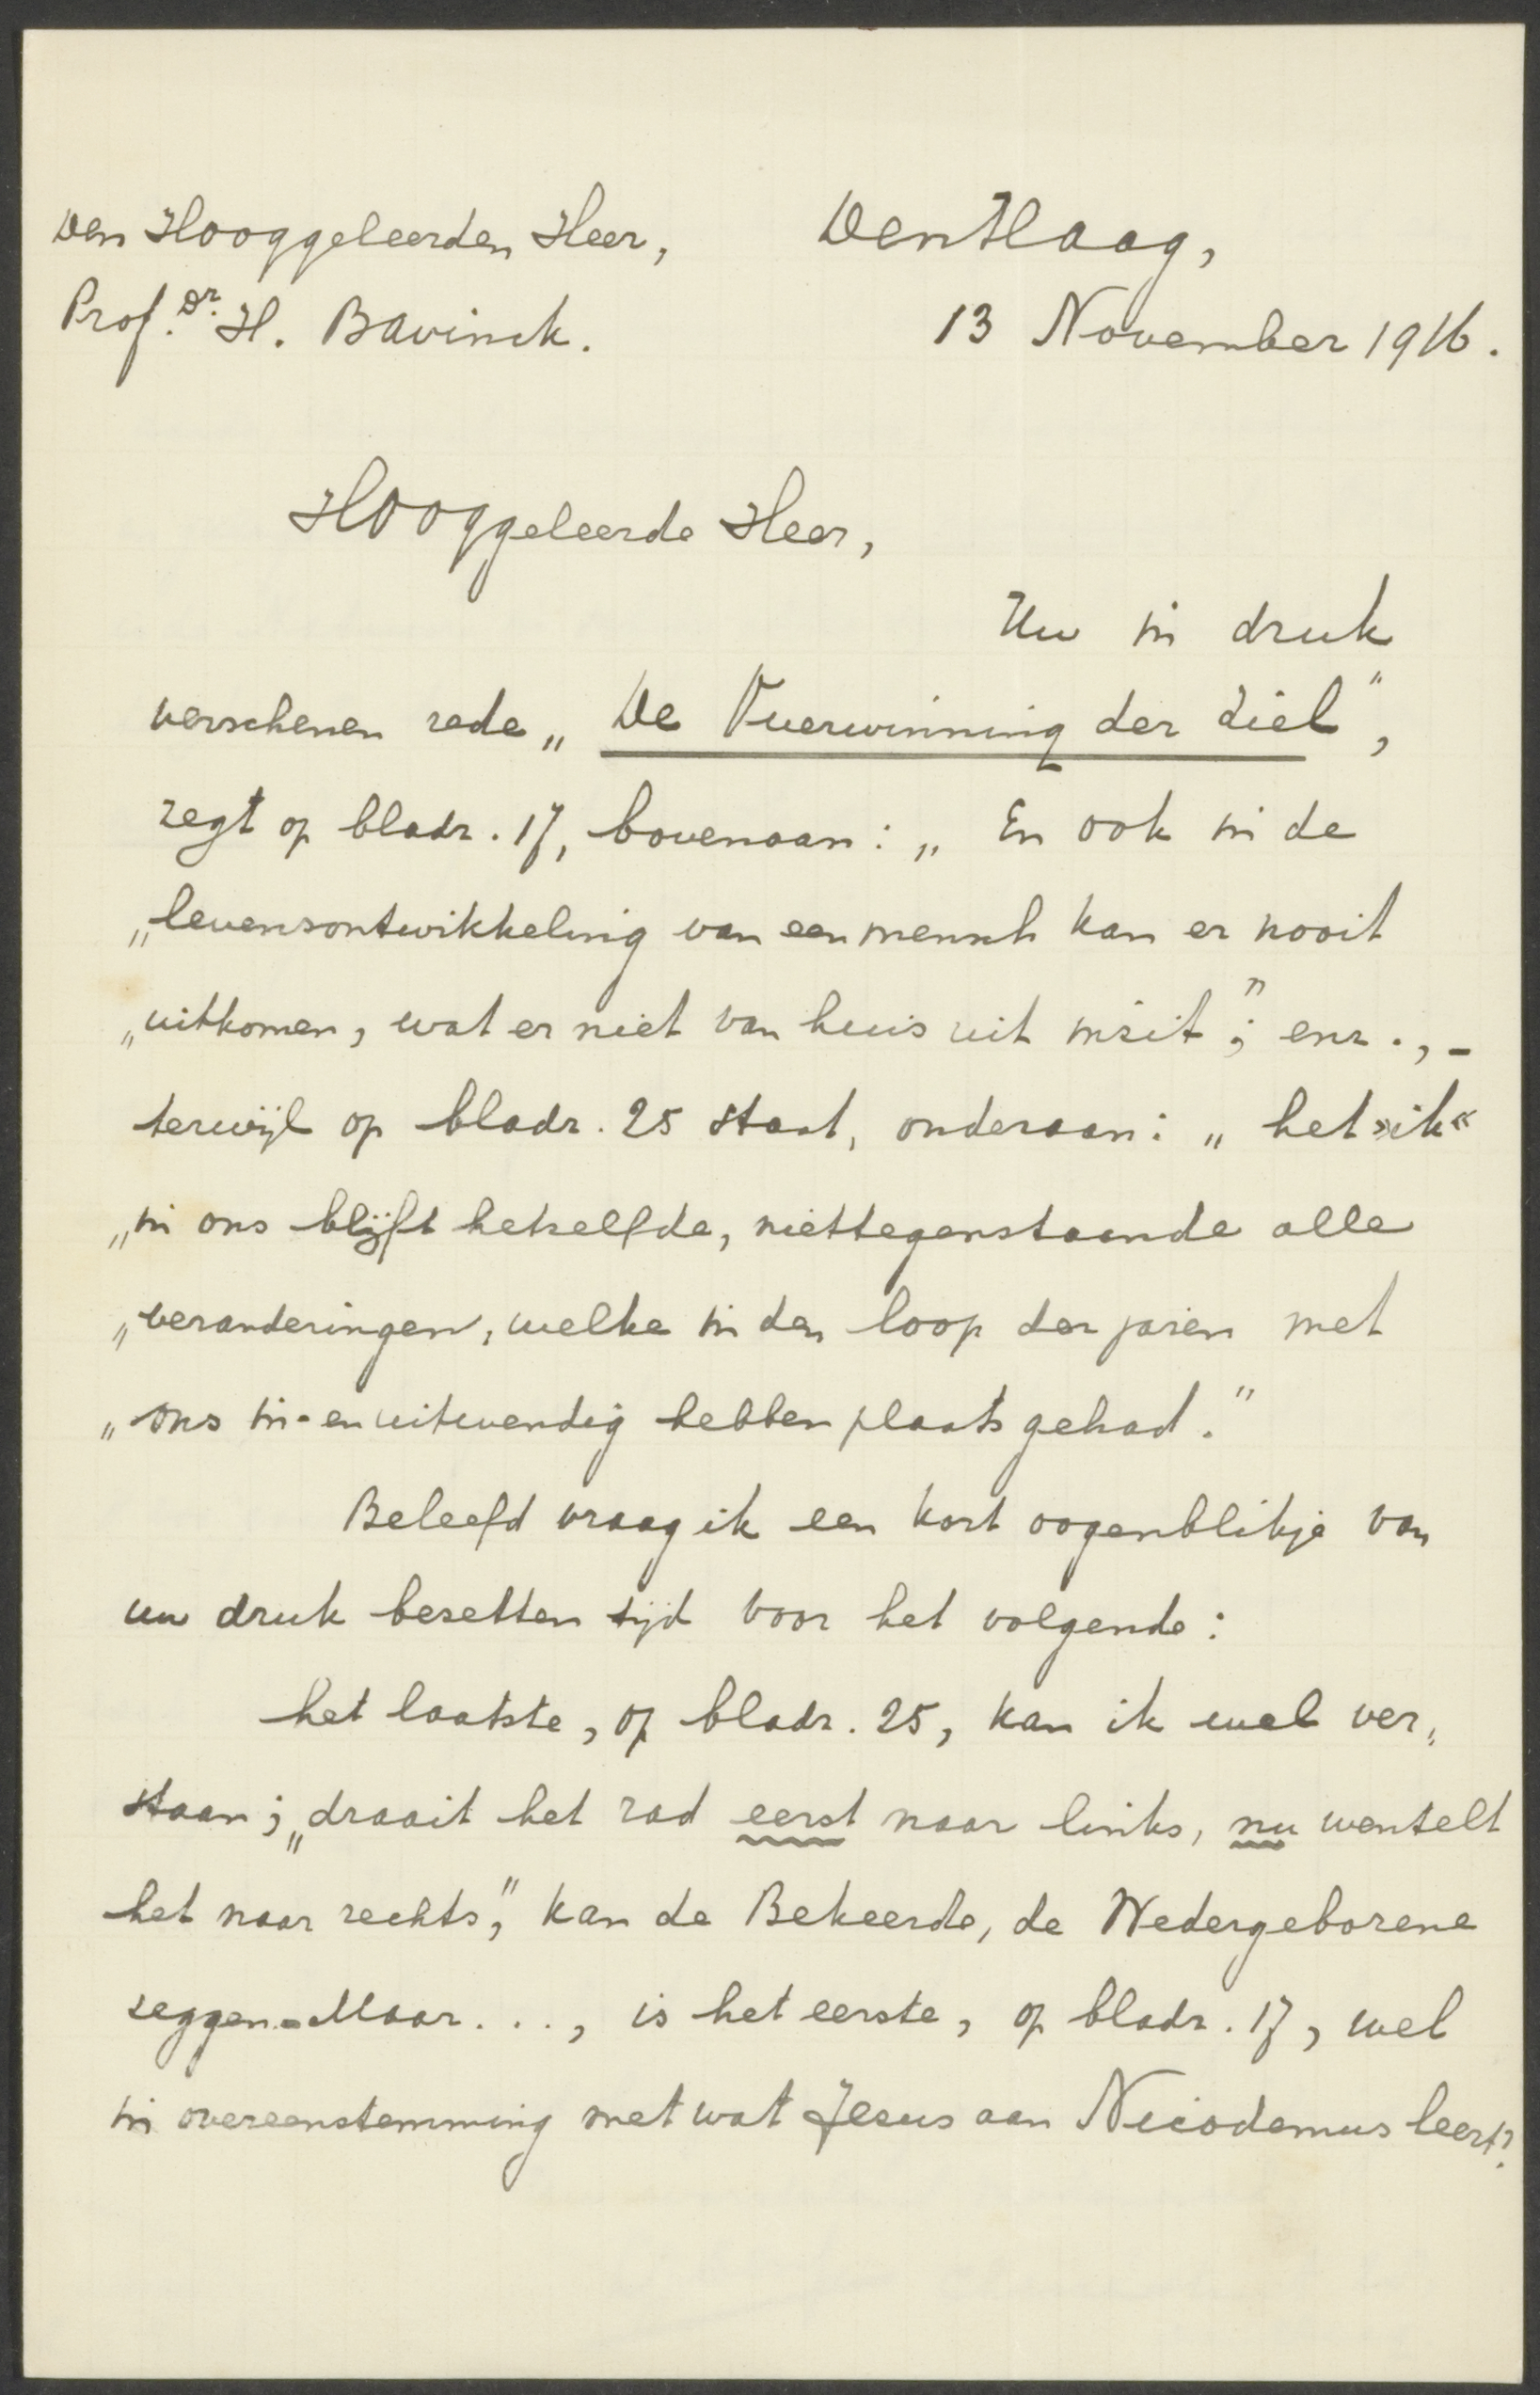 Den Hooggeleerden Heer,
Prof. Dr. H. Bavinck.
Den Haag,
13 November 1916.
Hooggeleerde Heer,
Uw in druk
verschenen rede „De Overwinning der Ziel”,
zegt op bladz. 17, bovenaan: „En ook in de
„levensontwikkeling van een mensch kan er nooit
„uitkomen, wat er niet van huis uit inzit”; enz., -
terwijl op bladz. 25 staat, onderaan: „het »ik«
„in ons blijft hetzelfde, niettegenstaande alle
„veranderingen, welke in den loop der jaren met
„ons in- en uitwendig hebben plaats gehad.”
Beleefd vraag ik een kort oogenblikje van
uw druk bezetten tijd voor het volgende:
het laatste, op bladz. 25, kan ik wel ver„
staan; „draait het rad eerst naar links, nu wentelt
het naar rechts”, kan de Bekeerde, de Wedergeborene
zeggen. - Maar..., is het eerste, op bladz. 17, wel
in overeenstemming met wat Jezus aan Nicodemus leert?